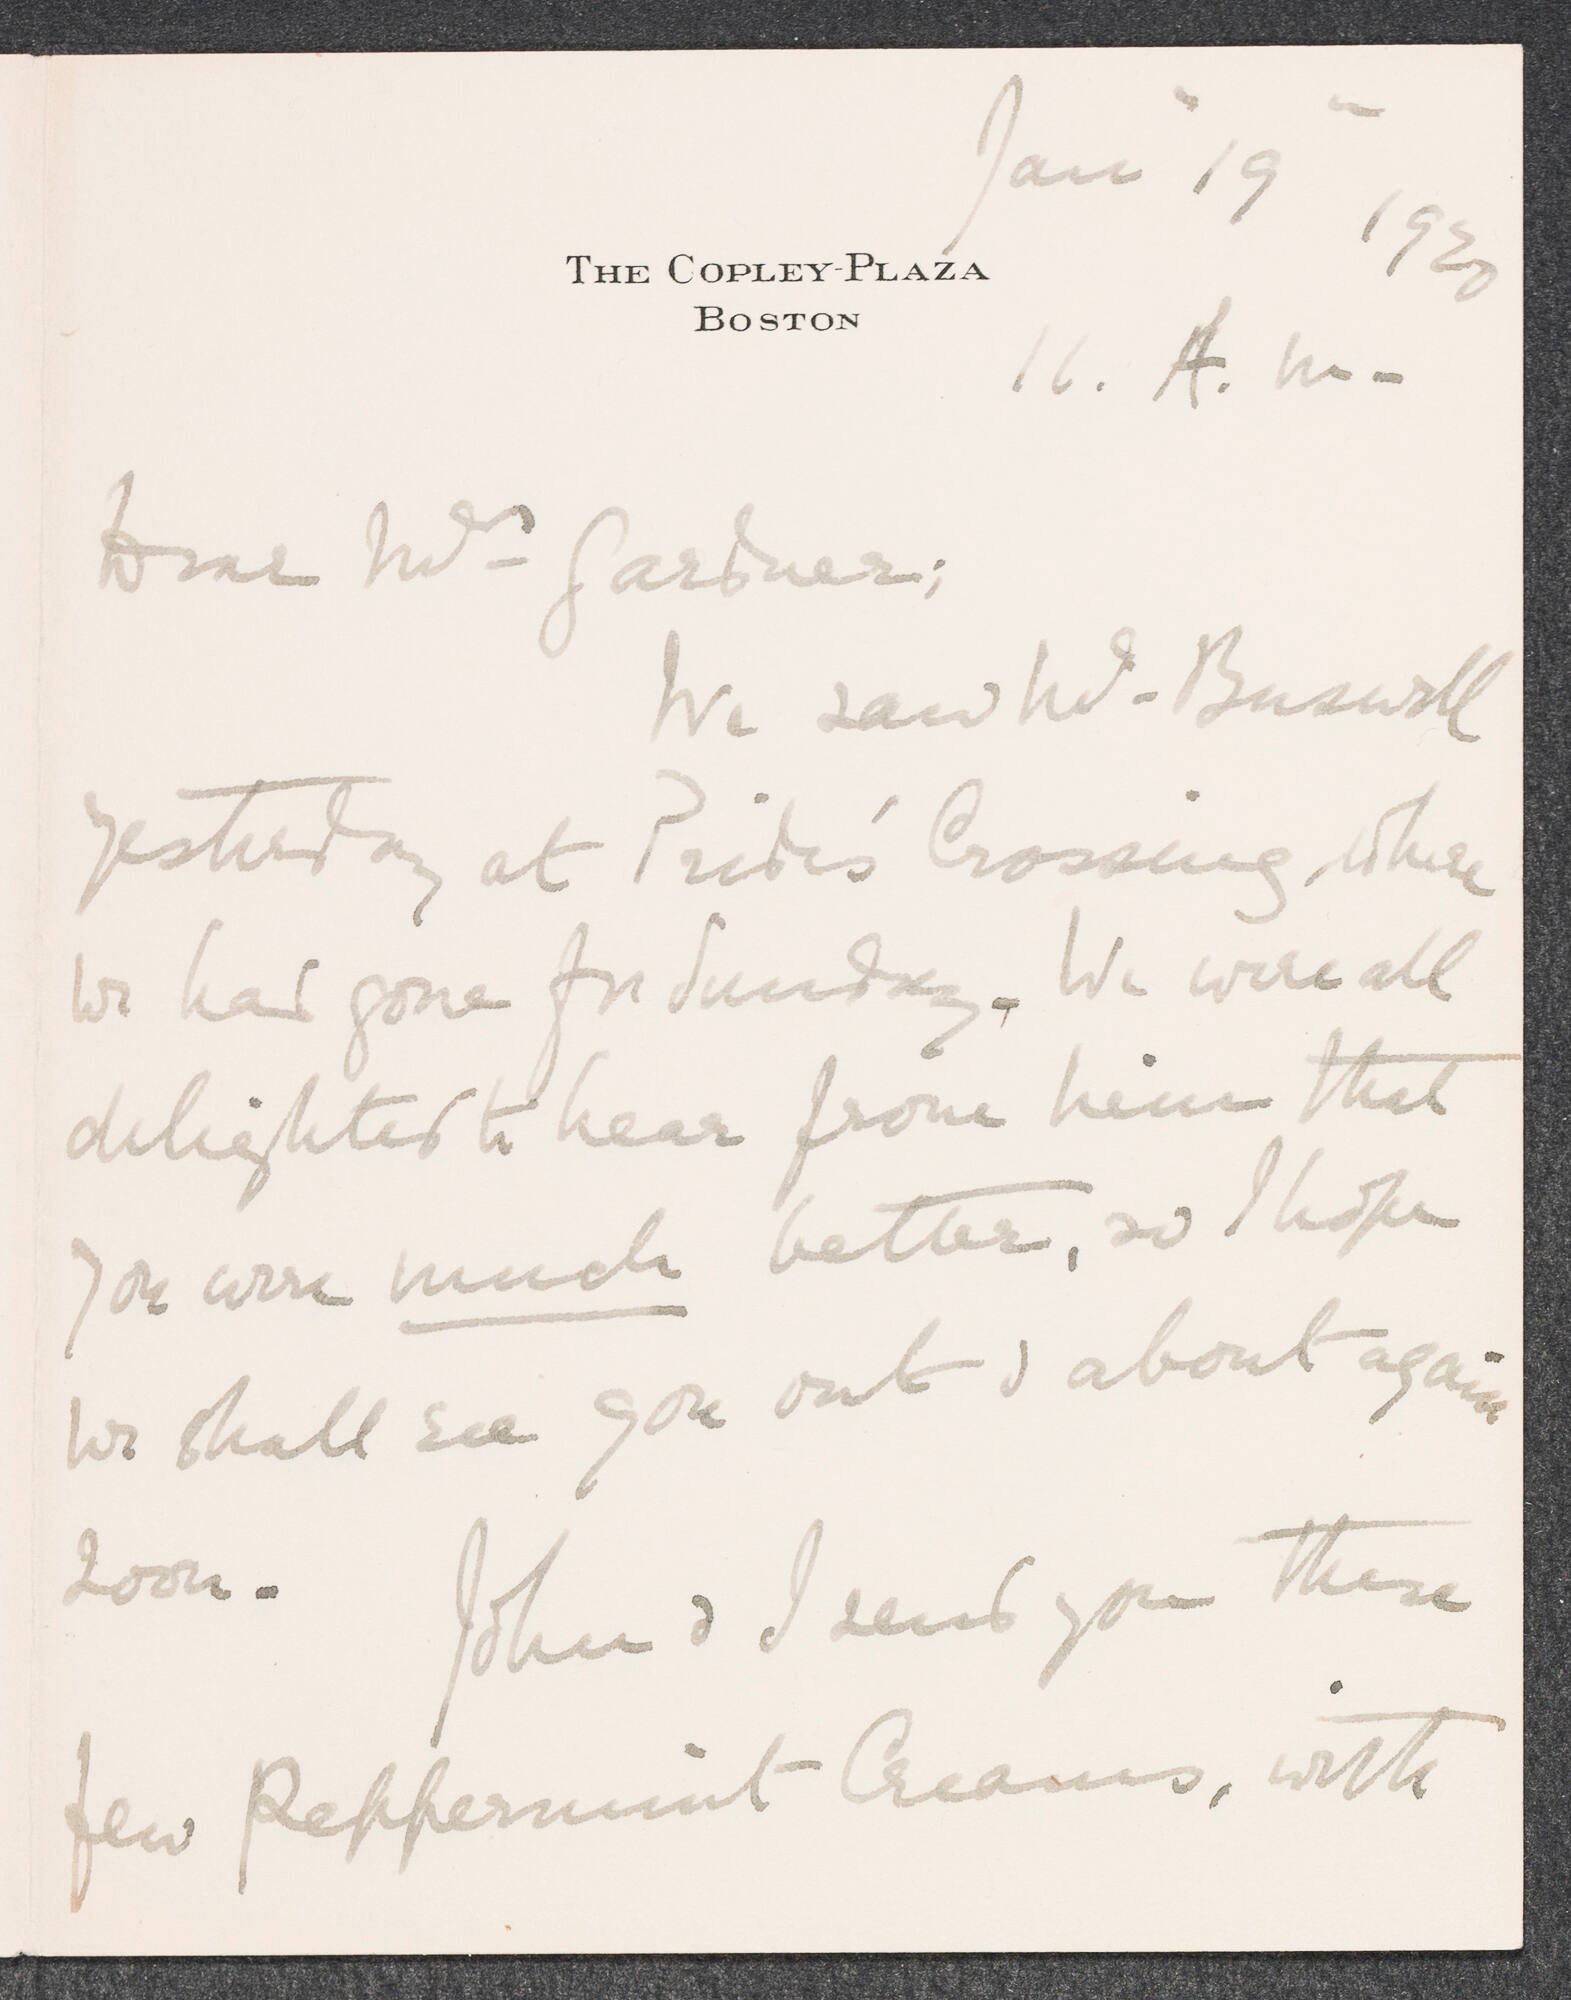 Jan 19 1920
THE COPLEY-PLAZA
BOSTON
11. A. M-
Dear Mrs Gardner;
We saw Mr- Buswell
yesterday at Prides' Crossing, where
we had gone for Sunday. We were all
delighted to hear from him that
you were much better, so I hope
we shall see you out & about again
soon-
John & I send you these
few Peppermint Creams, with